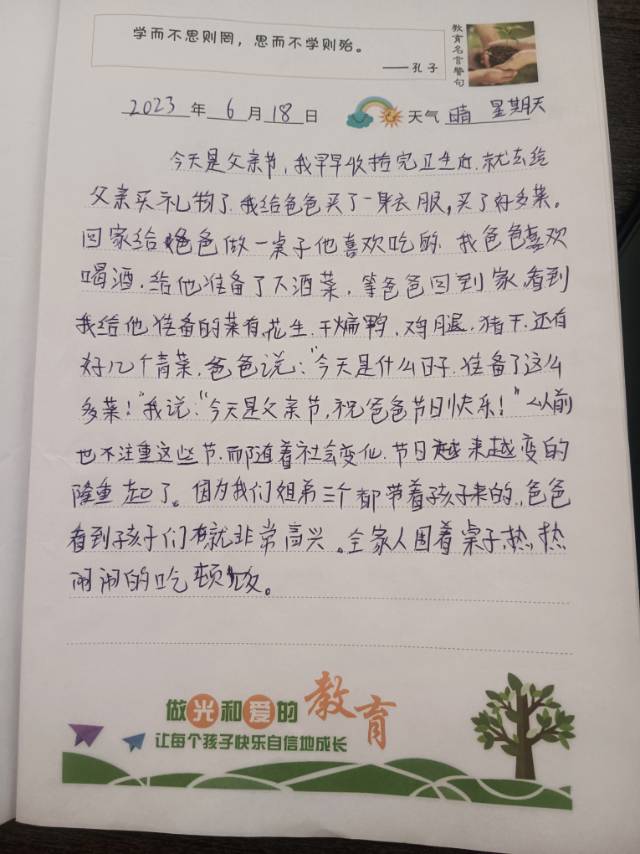 学而不思则罔，思而不学则殆。
——孔子
教育名言警句
2023年6月18日 天气 晴 星期天
今天是父亲节，我早早收拾完卫生后.就去给
父亲买礼物了.我给爸爸买了一身衣服，买了好多菜。
回家给爸爸做一桌子他喜欢吃的.我爸爸喜欢
喝酒.给他准备了下酒菜，等爸爸回到家.看到
我给他准备的菜有.花生.干煸鸭.鸡腿.猪干.还有
好几个青菜.爸爸说:"今天是什么日子.准备了这么
多菜！"我说:"今天是父亲节,祝爸爸节日快乐！"以前
也不注重这些节.而随着社会变化.节日越来越变的
隆重起了。因为我们姐弟三个都带着孩子来的.爸爸
看到孩子们就非常高兴。全家人围着桌子.热热
闹闹的吃顿饭。
做光和爱的教育
让每个孩子快乐自信地成长